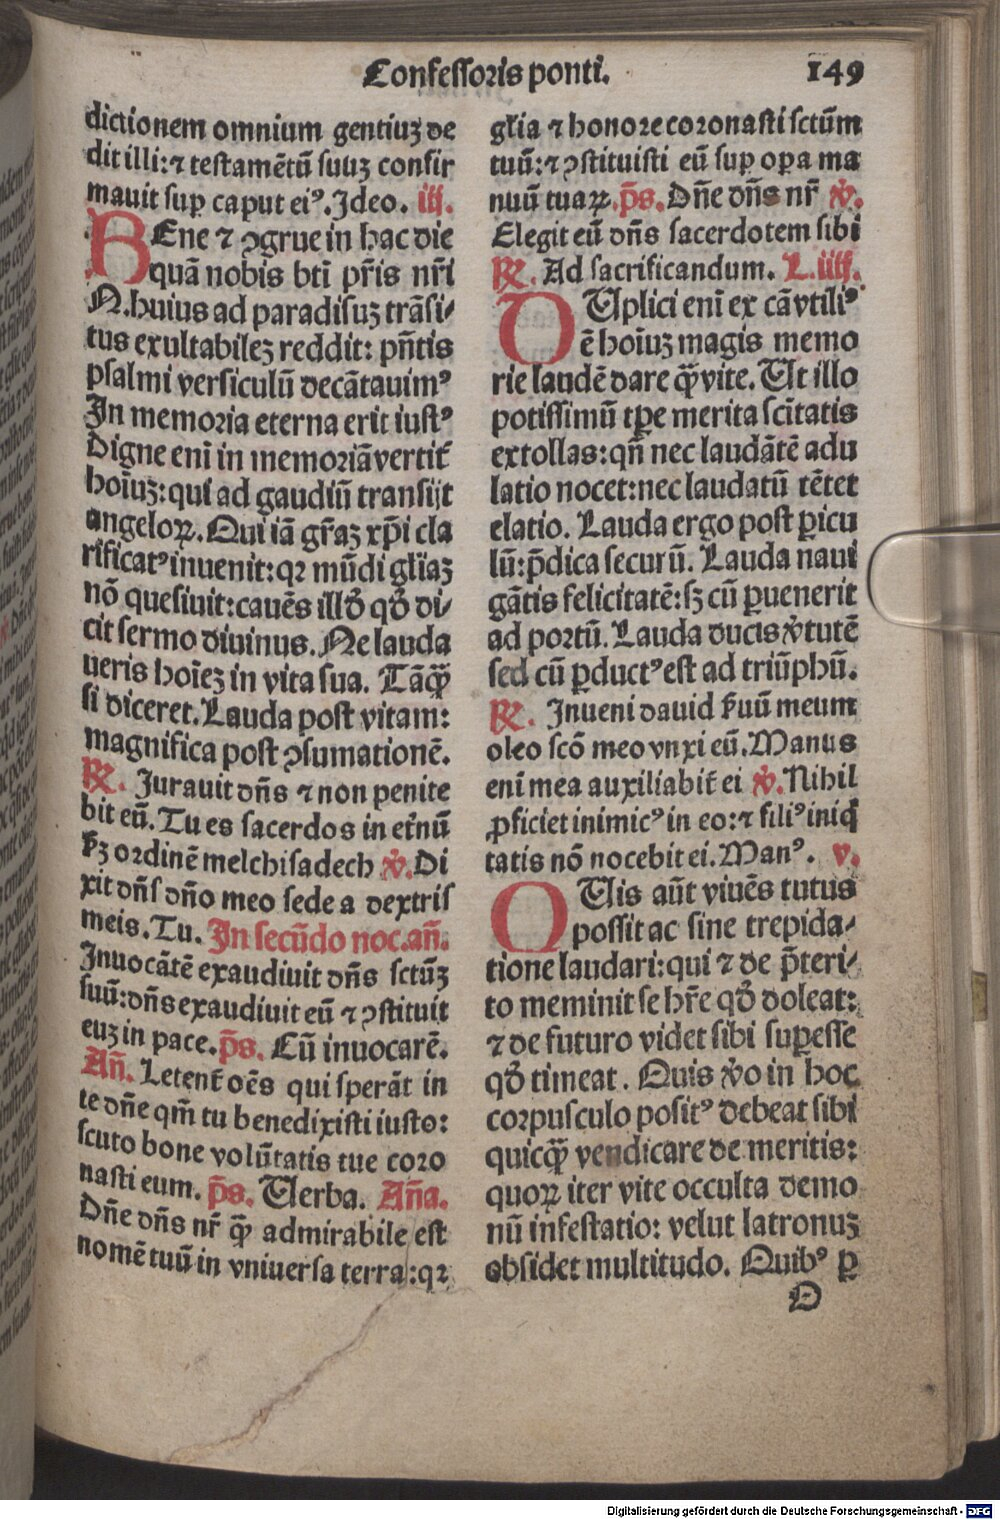 Confessoris ponti. 149
dictionem omnium gentiuz de
dit illi: ⁊ testamētū suuz confir
mauit sup caput eiꝰ. Ideo. iij.
BEne ⁊ ꝯgrue in hac die
quā nobis bt̄i pr̄is nr̄i
N. huius ad paradisuz trāsi⸗
tus exultabilez reddit: pn̄tis
psalmi versiculū decātauimꝰ
In memoria eterna erit iustꝰ
Digne eni in memoriā vertit̄
hoīuz: qui ad gaudiū transijt
angeloꝝ. Qui iā gr̄az xp̄i cla
rificatꝰ inuenit: qꝛ mūdi gl̄iaz
nō quesiuit: cauēs illđ qđ di⸗
cit sermo diuinus. Ne lauda
ueris hoīez in vita sua. Tāqꝫ̄
si diceret. Lauda post vitam:
magnifica post ꝯsumationē.
℟. Jurauit dn̄s ⁊ non penite
bit eū. Tu es sacerdos in et̄nū
ẜz ordinē melchisadech ℣. Di
xit dn̄s dn̄o meo sede a dextris
meis. Tu. In secūdo noc. an̄.
Inuocātē exaudiuit dn̄s sctūz
suū: dn̄s exaudiuit eū ⁊ ꝯstituit
euz in pace. p̄s. Cū inuocarē.
An̄. Letent̄ oēs qui sperāt in
te dn̄e qm̄ tu benedixisti iusto:
scuto bone volūtatis tue coro
nasti eum. p̄s. Verba. An̄a.
Dn̄e dn̄s nr̄ qꝫ̄ admirabile est
nomē tuū in vniuersa terra: qꝛ
gl̄ia ⁊ honore coronasti sctūm
tuū: ⁊ ꝯstituisti eū suꝑ oꝑa ma
nuū tuaꝝ. p̄s. Dn̄e dn̄s nr̄ ℣.
Elegit eū dn̄s sacerdotem sibi
℟. Ad sacrificandum. L. iiij.
DUplici eni ex cā vtiliꝰ
ē hoīuz magis memo
rie laudē dare qꝫ̄ vite. Ut illo
potissimū tꝑe merita scītatis
extollas: qn̄ nec laudātē adu
latio nocet: nec laudatū tētet
elatio. Lauda ergo post ꝑicu
lū: p̄dica securū. Lauda naui
gātis felicitatē: sꝫ cū ꝑuenerit
ad portū. Lauda ducis ꝟtutē
sed cū ꝑductꝰ est ad triūphū.
℟. Inueni dauid ẜuū meum
oleo scō meo vnxi eū. Manus
eni mea auxiliabit̄ ei ℣. Nihil
ꝓficiet inimicꝰ in eo: ⁊ filiꝰ iniq̄
tatis nō nocebit ei. Manꝰ. v.
QUis aūt viuēs tutus
possit ac sine trepida⸗
tione laudari: qui ⁊ de p̄teri⸗
to meminit se hr̄e qđ doleat:
⁊ de futuro videt sibi suꝑesse
qđ timeat. Quis ꝟo in hoc
corpusculo positꝰ debeat sibi
quicqꝫ̄ vendicare de meritis:
quoꝝ iter vite occulta demo
nū infestatio: velut latronuz
obsidet multitudo. Quibꝰ ꝑ
D
Digitalisierung gefördert durch die Deutsche Forschungsgemeinschaft - DFG